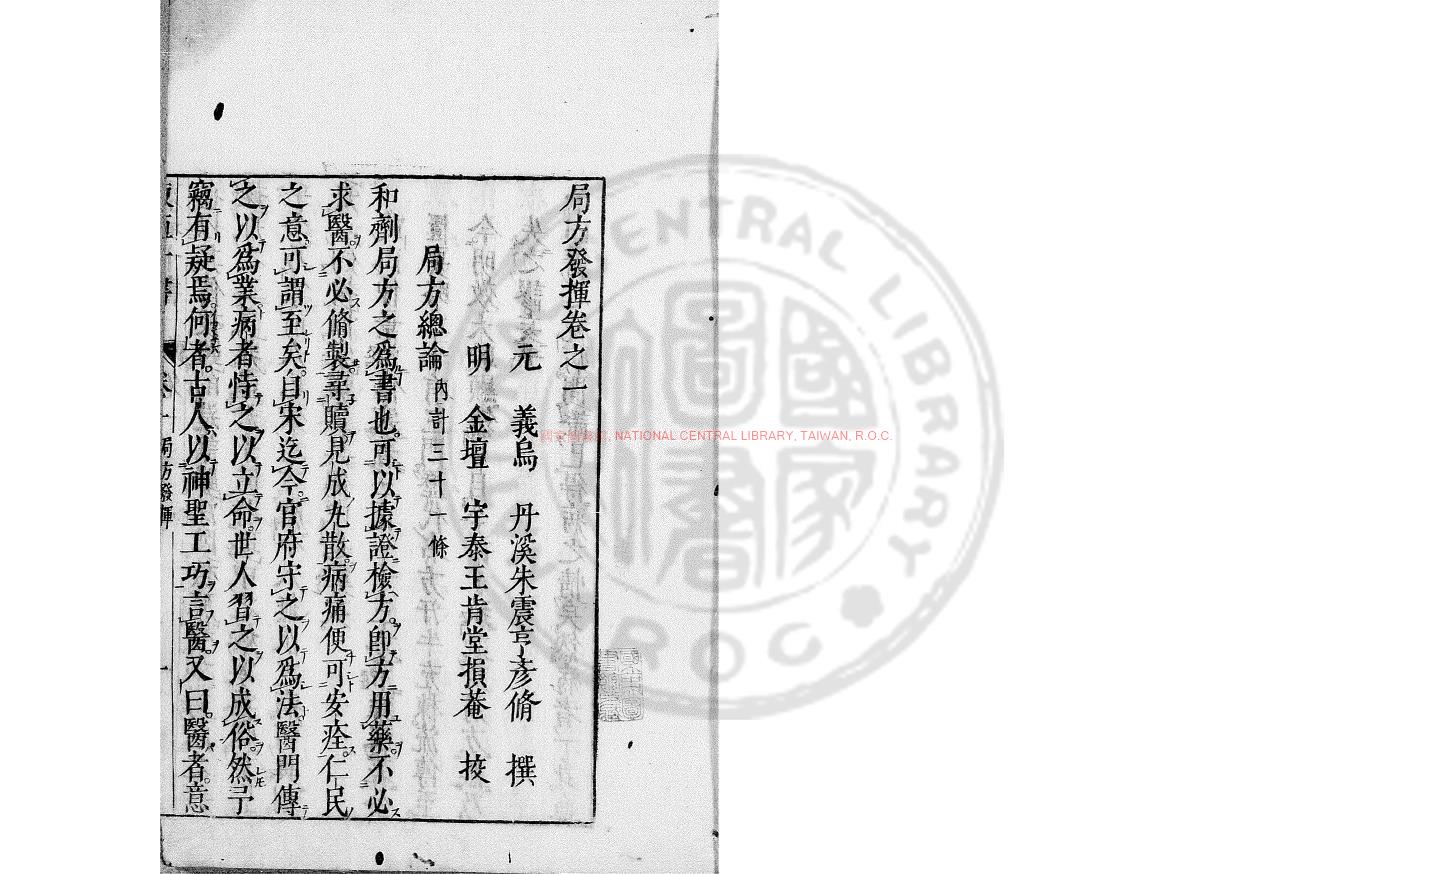 局方發揮卷之一
元 義烏 丹溪朱震亨彥脩 撰
明 金壇 宇泰王肯堂損菴 挍
局方總論 內計三十一條
和劑局方之爲書也可以據證檢方卽方用藥不必
求醫不必脩製尋贖見成丸散病痛便可安痊仁民
之意可謂至矣自宋迄今官府守之以爲法醫門傳
之以爲業病者恃之以立命世人習之以成俗然予
竊有疑焉何者古人以神聖工巧言醫又曰醫者意
局方發揮
國家圖書館, NATIONAL CENTRAL LIBRARY, TAIWAN, R.O.C.
CENTRAL LIBRARY
R.O.C.